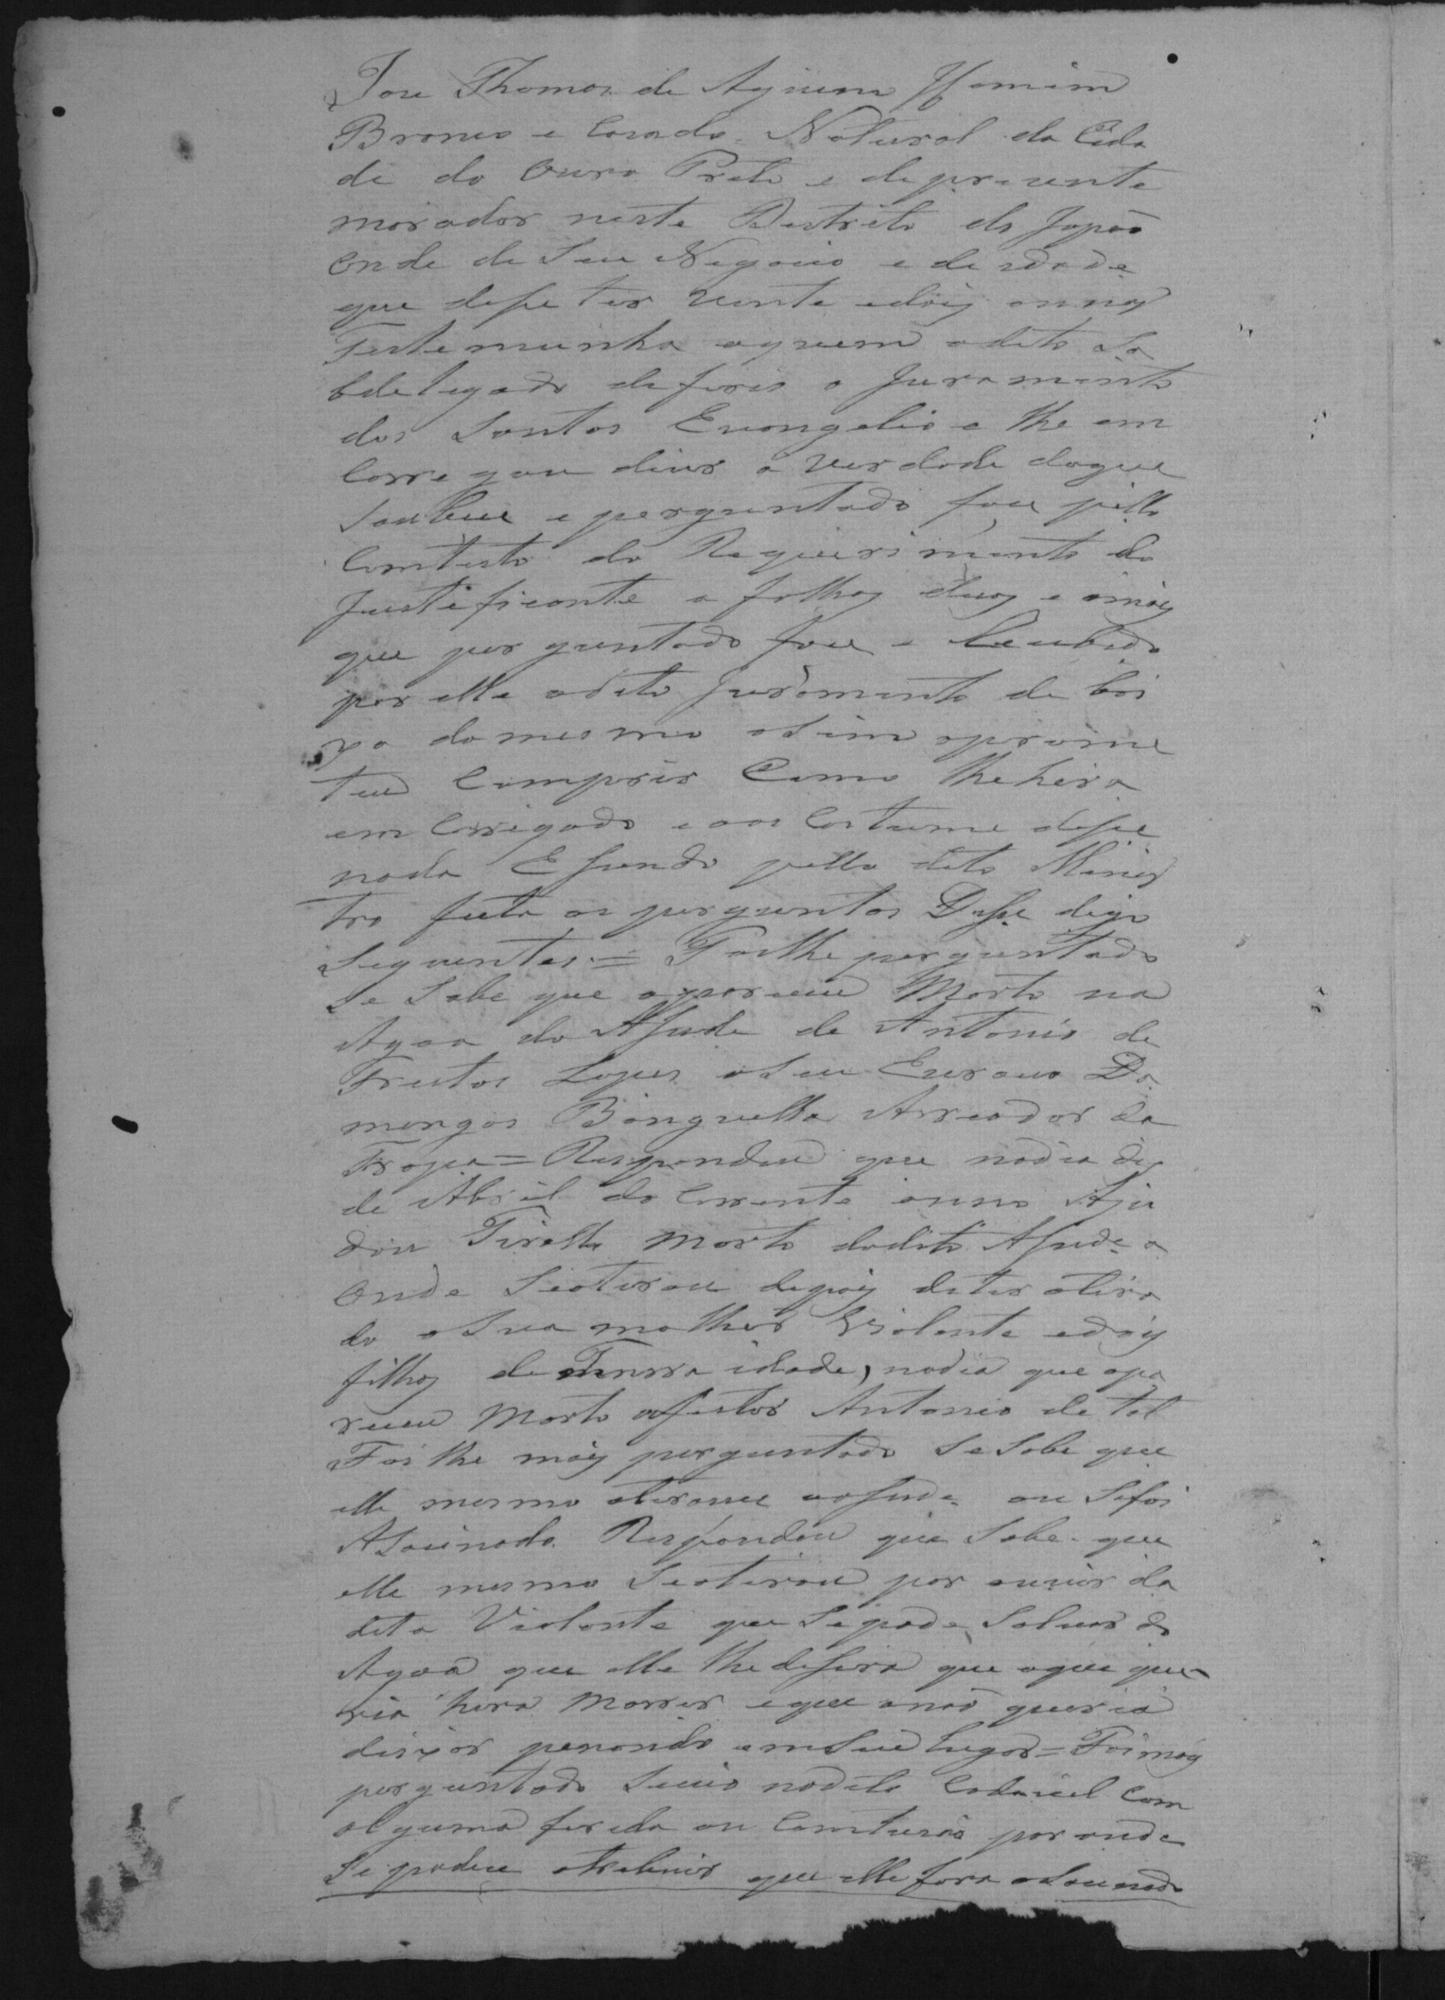 Jose Thomas de Aquino Homim
Branco e Casado Natural da Cida
de do Ouro Preto e de prezente
morador neste Destrito do Japaõ
onde de Seu Negocio e de idade
que dise ter vinte e dois annos
Testemunha aquem o dito Su
bdelegado deferio o Juramento
dos Santos Evangelios e lhe em
carregou dicer a verdade do que
Soubece e perguntado fou pello
Comtiuto do Requerimento do
Justeficante a folhas duas e o mais
que perguntado fou e Recebido
por elle o dito Juramento de bai
xo do mesmo asim o prome
teu Comprir Como lhe hera
emcarregado e aos Costume dise
nada E Sendo pello dito Menis
tro feita as perguntas Dise digo
Seguentes = Foi lhe perguntado
Se Sabe que apareceu Morto na
Agoa do Asude de Antonio de
Freitas Lopes o Seu Escravo Do
mingos Binguella Arreador da
Tropa = Respondeu que no dia des
de Abril do Corrente anno Aju
dou Tirallo Morto do dito Asude a
onde Seatirou depois de ter atira
do a Sua molher Violante e dois
filhos de Tenrra idade, no dia que apa
receu Morto o feitor Antonio de tal
Foi lhe mais perguntado Se Sabe que
elle mesmo atirouce ao Sude ou Se foi
ASacinado Respondeu que Sabe que
elle mesmo Seatirou por ouvir da
dita Violante que Sepode Salvar da
Agoa que elle lhe disera que o que que
ria hera Morrer e que a naõ queria
deixar penando em Seu lugar = Foi mais
perguntado Seuio no dito Cadavel Com
alguma ferida ou Comtusaõ por onde
Se podece atrebuir que elle fora asacinado